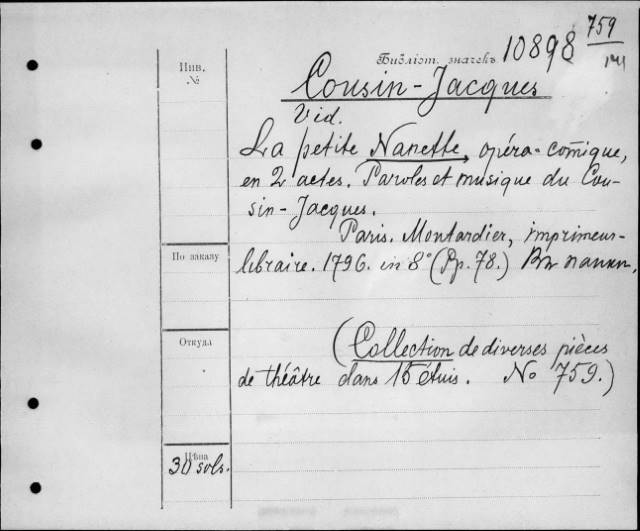 759
Библіот. значекъ 10898
Инв.
№
Cousin-Jacques
Vid.
La petite Nanette, opéra-comique,
en 2 actes. Paroles et musique du Cou-
sin-Jacques.
Paris. Montardier, imprimeur-
По заказу
libraire. 1796. in 8° (Pp. 78.) Въ папкѣ.
Откуда
(Collection de diverses pièces
de théâtre dans 15 étuis. No 759.)
Цѣна
30 sols.